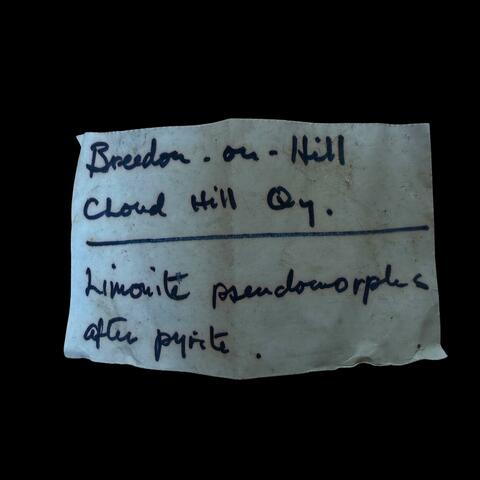 Breedon-on-Hill
Cloud Hill Qy.
Limonite pseudomorphs
after pyrite.